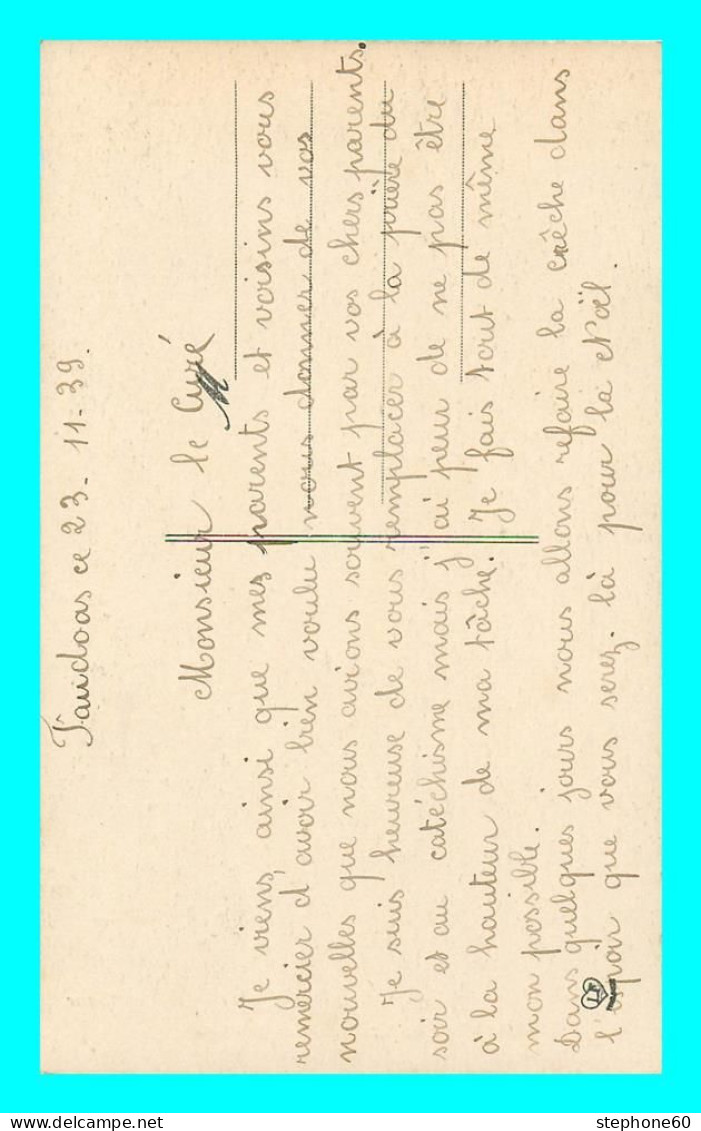 Faudoas ce 23-11-39.
Monsieur le Curé
Je viens, ainsi que mes parents et voisins vous
remercier d'avoir bien voulu nous donner de vos
nouvelles que nous avions souvent par vos chers parents.
Je suis heureuse de vous remplacer à la prière du
soir et au catéchisme mais j'ai peur de ne pas être
à la hauteur de ma tâche. Je fais tout de même
mon possible.
Dans quelques jours nous allons refaire la crêche dans
l'espoir que vous serez là pour la Noël.
stephone60